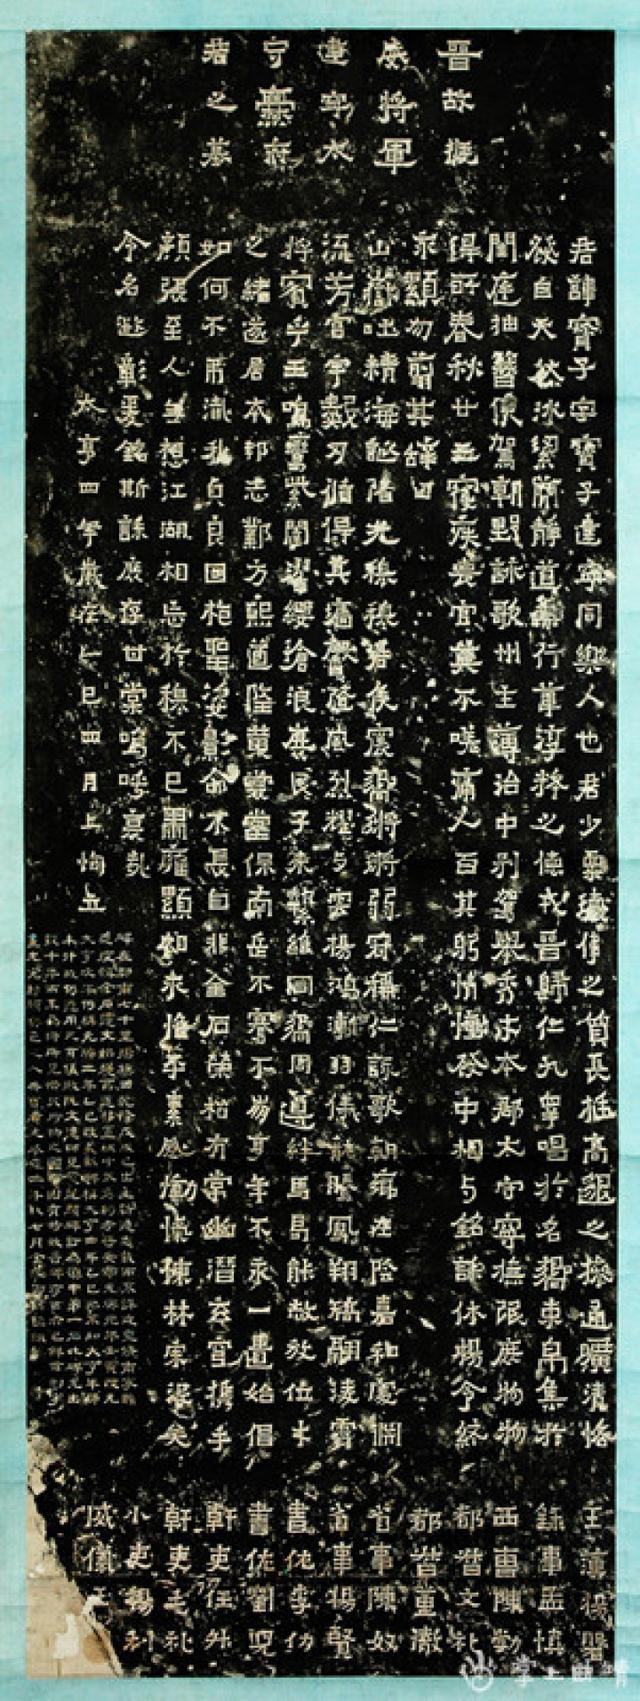 晉故振
威將軍
建寧太
守爨府
君之墓
君諱寶子字寶子建寧同樂人也君少稟瓌偉之質長挺高邈之操通曠清恪
發自天然冰絜簡靜道兼行葦淳粹之德戎晉歸仁九皋唱於名嚮束帛集於
閨庭抽簪俟駕朝野詠歌州主簿治中別駕舉秀才本郡太守寧撫氓庶物物
得所春秋廿五寢疾喪官莫不嗟痛人百其躬情慟發中相与銘誄休揚令終
永顯勿翦其辭曰
山嶽吐精海誕陼光穆穆君侯震嚮鏘鏘弱冠稱仁詠歌朝鄉在陰嘉和處淵
流芳宮宇數仞循得其墻馨隨風烈耀与雲揚鴻漸羽儀龍騰鳳翔矯翮凌霄
將賓乎王鳴鸞紫闥濯纓滄浪庶民子來縶維同嚮周遵絆馬曷能赦放位才
之緒遂居本邦志鄴方熙道隆黃裳當保南岳不騫不崩享年不永一匱始倡
如何不弔殲我貞良回抱聖姿影命不長自非金石榮枯有常幽潛玄穹攜手
顏張至人無想江湖相忘於穆不已肅雍顯相永惟平素感慟忾慷林宗没矣
令名遐彰爰銘斯誄庶存甘棠嗚呼哀哉
太亨四年歲在乙巳四月上恂立
主簿楊磐
錄事孟慎
西曹陳勃
都督文礼
都督董徹
省事陳奴
省事楊賢
書佐李仂
書佐劉兒
幹吏任升
幹吏毛礼
小吏楊利
威儀王
掌上曲靖